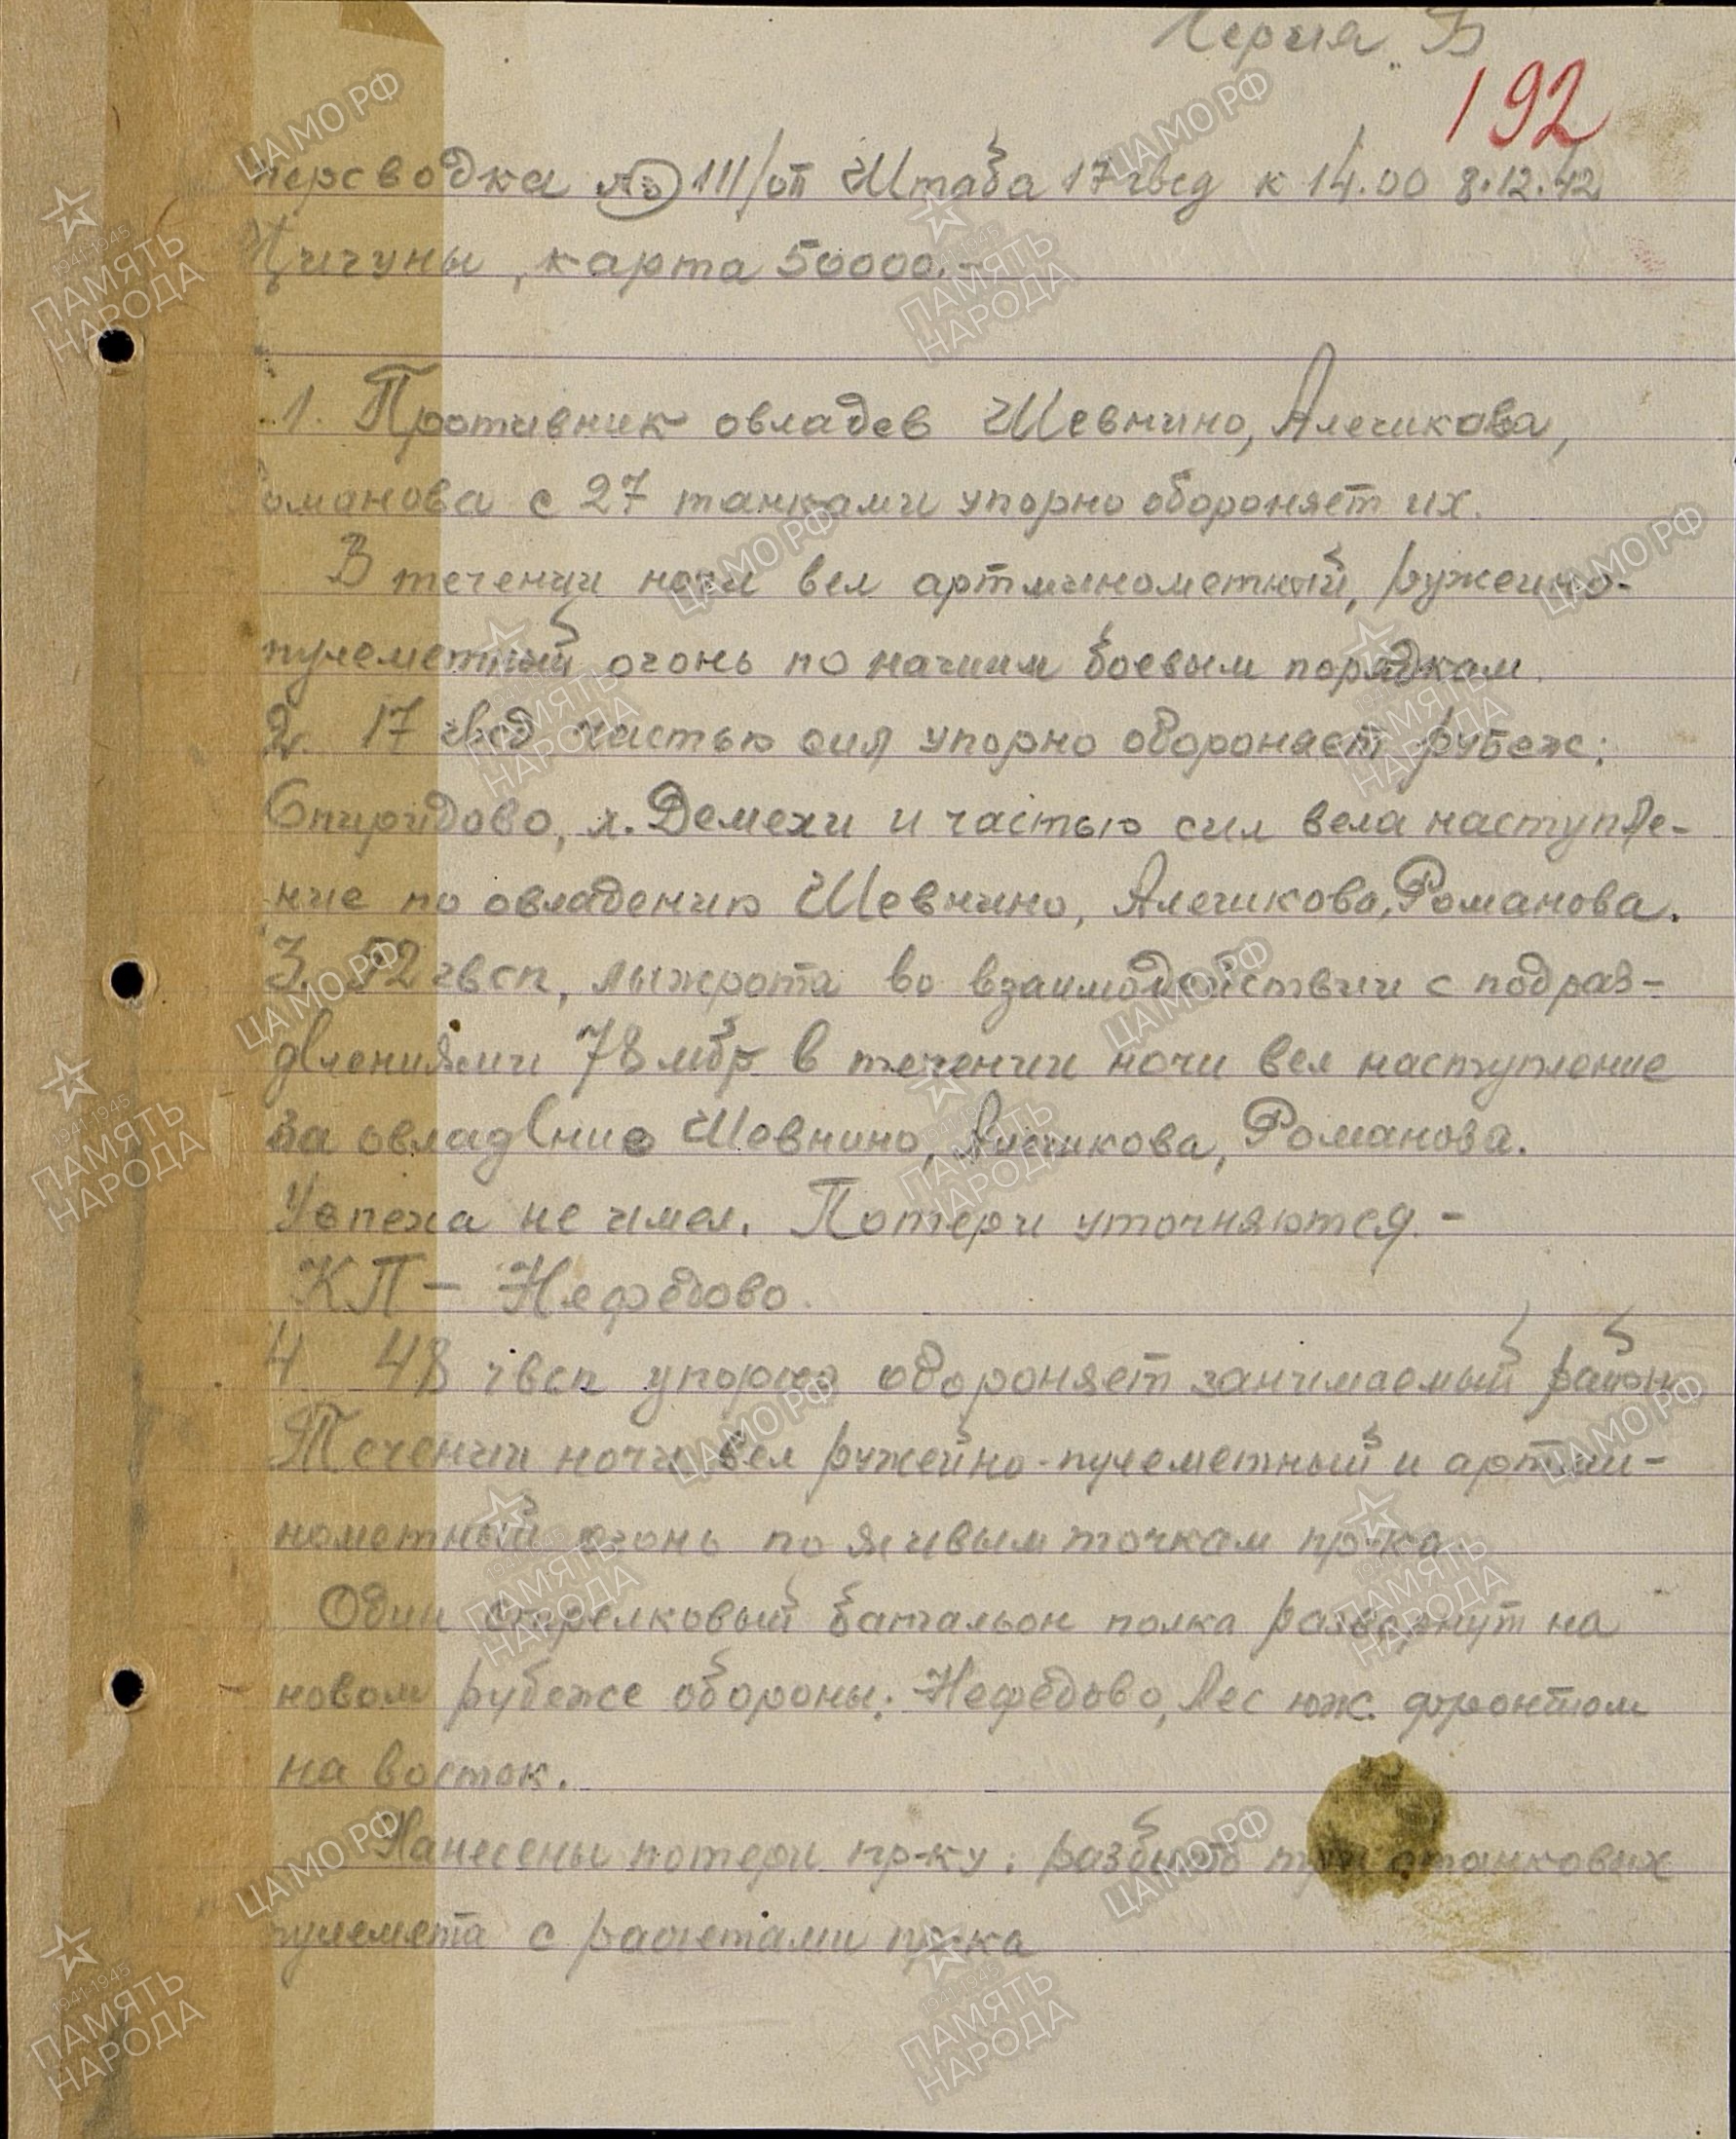 Серия "Б"
192
перСводка № 111/оп Штаба 17 гвсд к 14.00 8.12.42
Цичуны, карта 50000.-
1. Противник овладев Шевнино, Алешкова,
Романова с 27 танками упорно обороняет их.
В течении ночи вел артминометный, ружейно-
пулеметный огонь по нашим боевым порядкам.
2. 17 гвсд частью сил упорно обороняет рубеж:
Спиридово, л. Демехи и частью сил вела наступле-
ние по овладению Шевнино, Алешково, Романова.
3. 52 гвсп, лыжрота во взаимодействии с подраз-
делениями 78 мбр в течении ночи вел наступление
за овладение Шевнино, Алешкова, Романова.
Успеха не имел. Потери уточняются.-
КП - Нефедово.
4 48 гвсп упорно обороняет занимаемый район
Течении ночи вел ружейно-пулеметный и артми-
нометный огонь по живым точкам пр-ка.
Один стрелковый батальон полка развернут на
новом рубеже обороны: Нефедово, лес юж. фронтом
на восток.
Нанесены потери пр-ку: разбито три станковых
пулемета с расчетами пр-ка
ЦАМО РФ
1941-1945
ПАМЯТЬ
НАРОДА